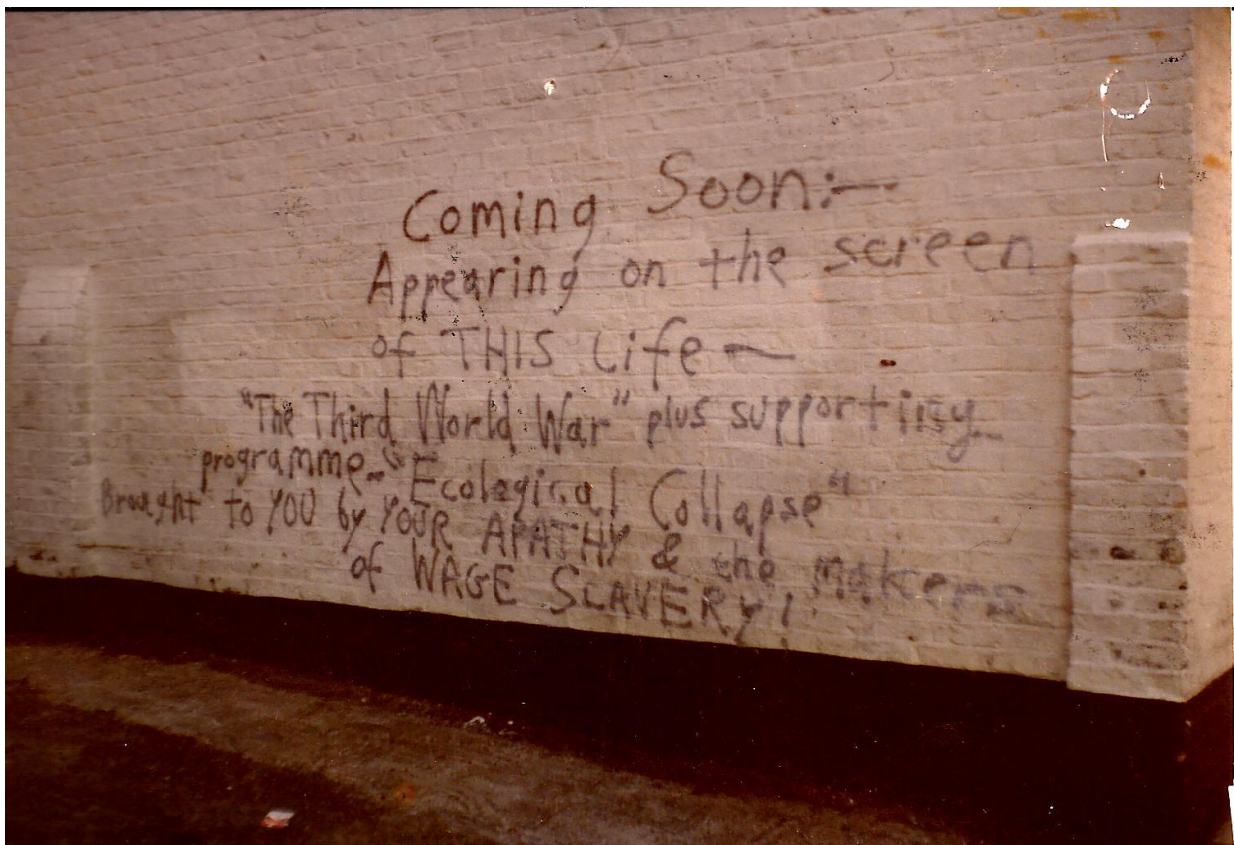 Coming Soon:—
Appearing on the screen
of THIS Life —
"The Third World War" plus supporting
programme - "Ecological Collapse"
Brought to YOU by YOUR APATHY & the makers
of WAGE SLAVERY!